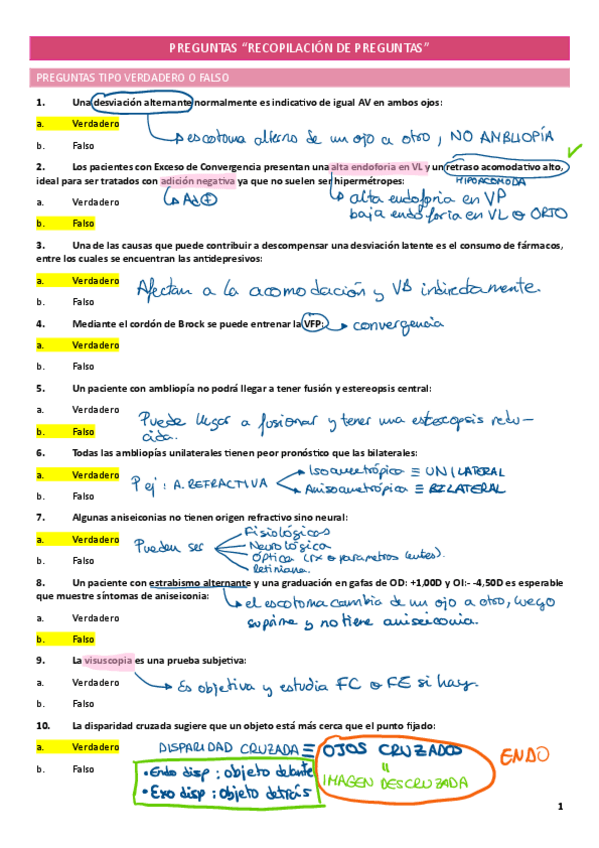 PREGUNTAS “RECOPILACIÓN DE PREGUNTAS”
PREGUNTAS TIPO VERDADERO O FALSO
1. Una desviación alternante normalmente es indicativo de igual AV en ambos ojos:
a. Verdadero
escotoma alterno de un ojo a otro, NO AMBLIOPÍA
b. Falso
2. Los pacientes con Exceso de Convergencia presentan una alta endoforia en VL y un retraso acomodativo alto,
ideal para ser tratados con adición negativa ya que no suelen ser hipermétropes:
HIPOACOMODA
a. Verdadero
Ad +
alta endoforia en VP
baja endoforia en VL o ORTO
b. Falso
3. Una de las causas que puede contribuir a descompensar una desviación latente es el consumo de fármacos,
entre los cuales se encuentran las antidepresivos:
a. Verdadero
Afectan a la acomodación y VB indirectamente.
b. Falso
4. Mediante el cordón de Brock se puede entrenar la VFP:
convergencia
a. Verdadero
b. Falso
5. Un paciente con ambliopía no podrá llegar a tener fusión y estereopsis central:
a. Verdadero
Puede llegar a fusionar y tener una estereopsis redu-
cida.
b. Falso
6. Todas las ambliopías unilaterales tienen peor pronóstico que las bilaterales:
a. Verdadero
Pej: A. REFRACTIVA
Isoametrópica ≡ UNILATERAL
Anisoametrópica ≡ BILATERAL
b. Falso
7. Algunas aniseiconias no tienen origen refractivo sino neural:
a. Verdadero
Pueden ser
Fisiológicas
Neurológica
Óptica (rx o parametros lentes).
Retiniana.
b. Falso
8. Un paciente con estrabismo alternante y una graduación en gafas de OD: +1,00D y OI:- -4,50D es esperable
que muestre síntomas de aniseiconia:
el escotoma cambia de un ojo a otro, luego
suprime y no tiene aniseiconia.
a. Verdadero
b. Falso
9. La visuscopia es una prueba subjetiva:
a. Verdadero
Es objetiva y estudia FC o FE si hay.
b. Falso
10. La disparidad cruzada sugiere que un objeto está más cerca que el punto fijado:
a. Verdadero
DISPARIDAD CRUZADA ≡ OJOS CRUZADOS
ENDO
=
IMAGEN DESCRUZADA
b. Falso
• Endo disp: objeto delante
• Exo disp: objeto detrás
1